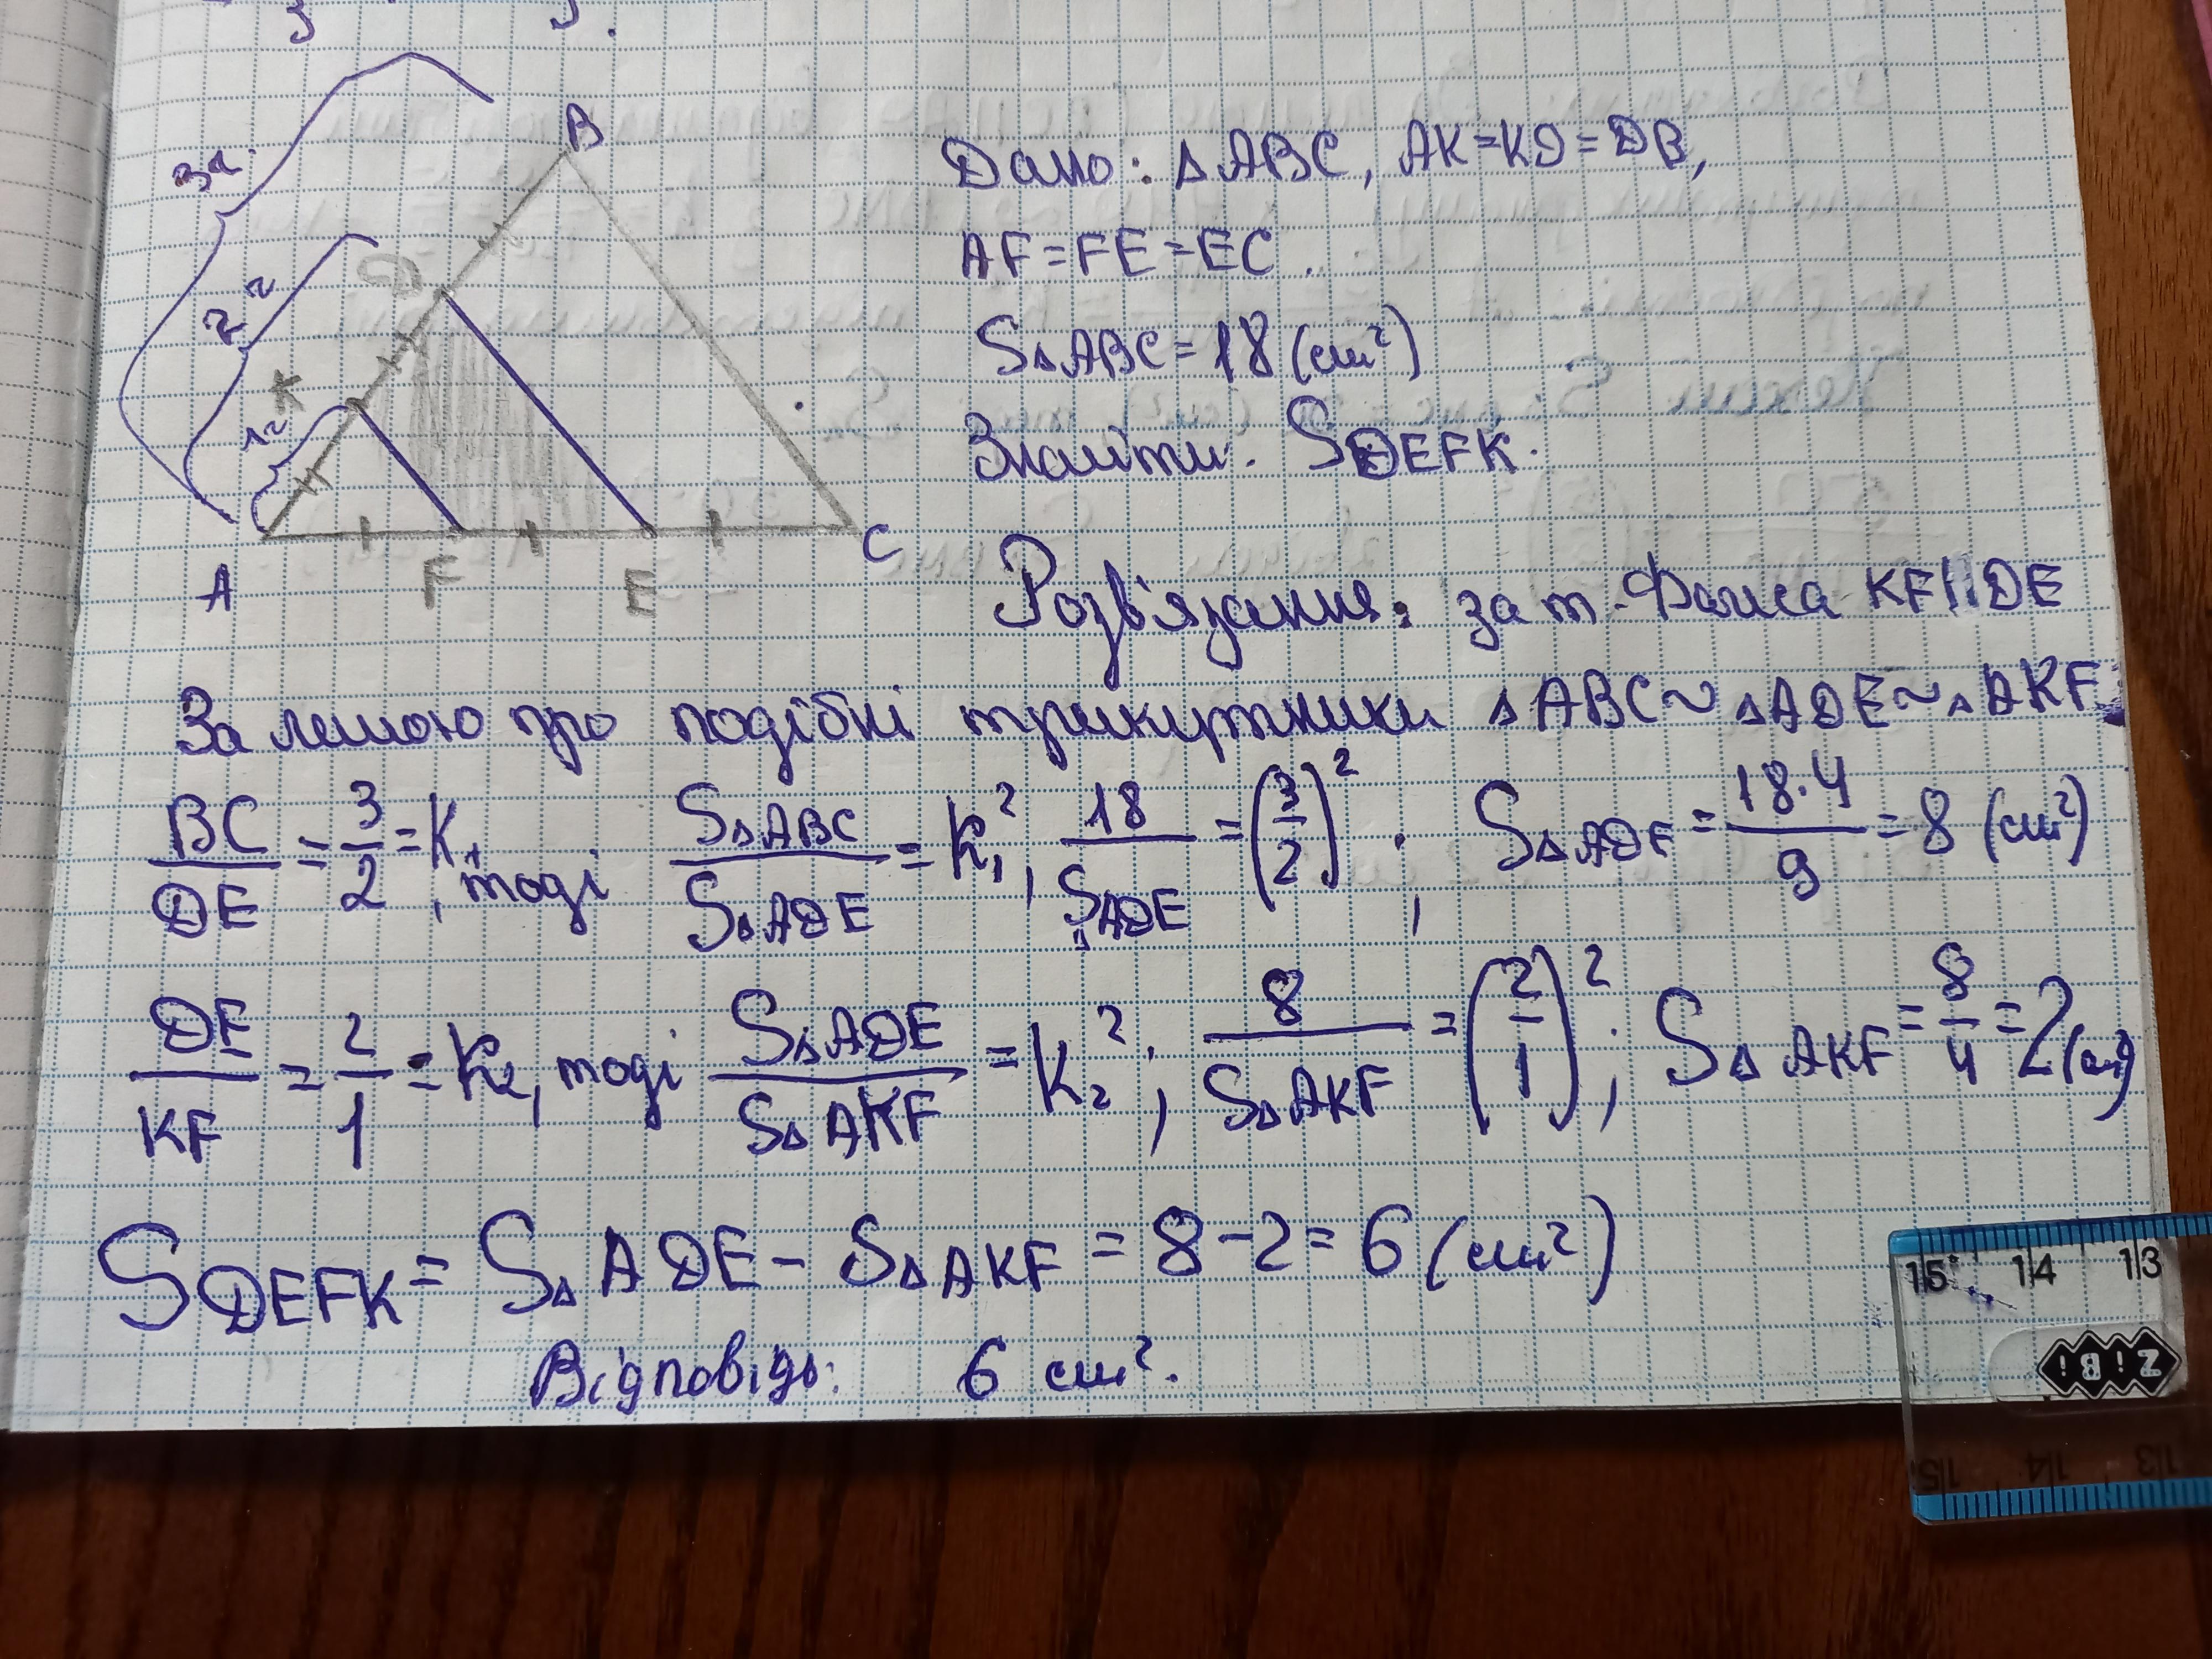 3a
2a
1a
B
D
K
A
F
E
C
Дано: △ABC, AK=KD=DB,
AF=FE=EC.
S△ABC=18(см²)
Знайти. SDEFK.
Розв'язання: за т. Фалеса KF||DE
За лемою про подібні трикутники △ABC~△ADE~△AKF.
BC/DE = 3/2 = K₁, тоді S△ABC/S△ADE = K₁², 18/S△ADE = (3/2)²; S△ADE = 18·4/9 = 8 (см²)
DE/KF = 2/1 = K₂, тоді S△ADE/S△AKF = K₂²; 8/S△AKF = (2/1)²; S△AKF = 8/4 = 2 (см)
SDEFK = S△ADE - S△AKF = 8-2 = 6 (см²)
Відповідь: 6 см².
15 14 13
ZiBi